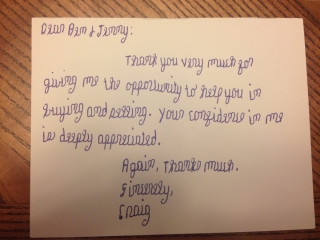 Dear Ben & Jenny:
Thank you very much for
giving me the opportunity to help you in
buying and selling. Your confidence in me
is deeply appreciated.
Again, thanks much.
Sincerely,
Craig